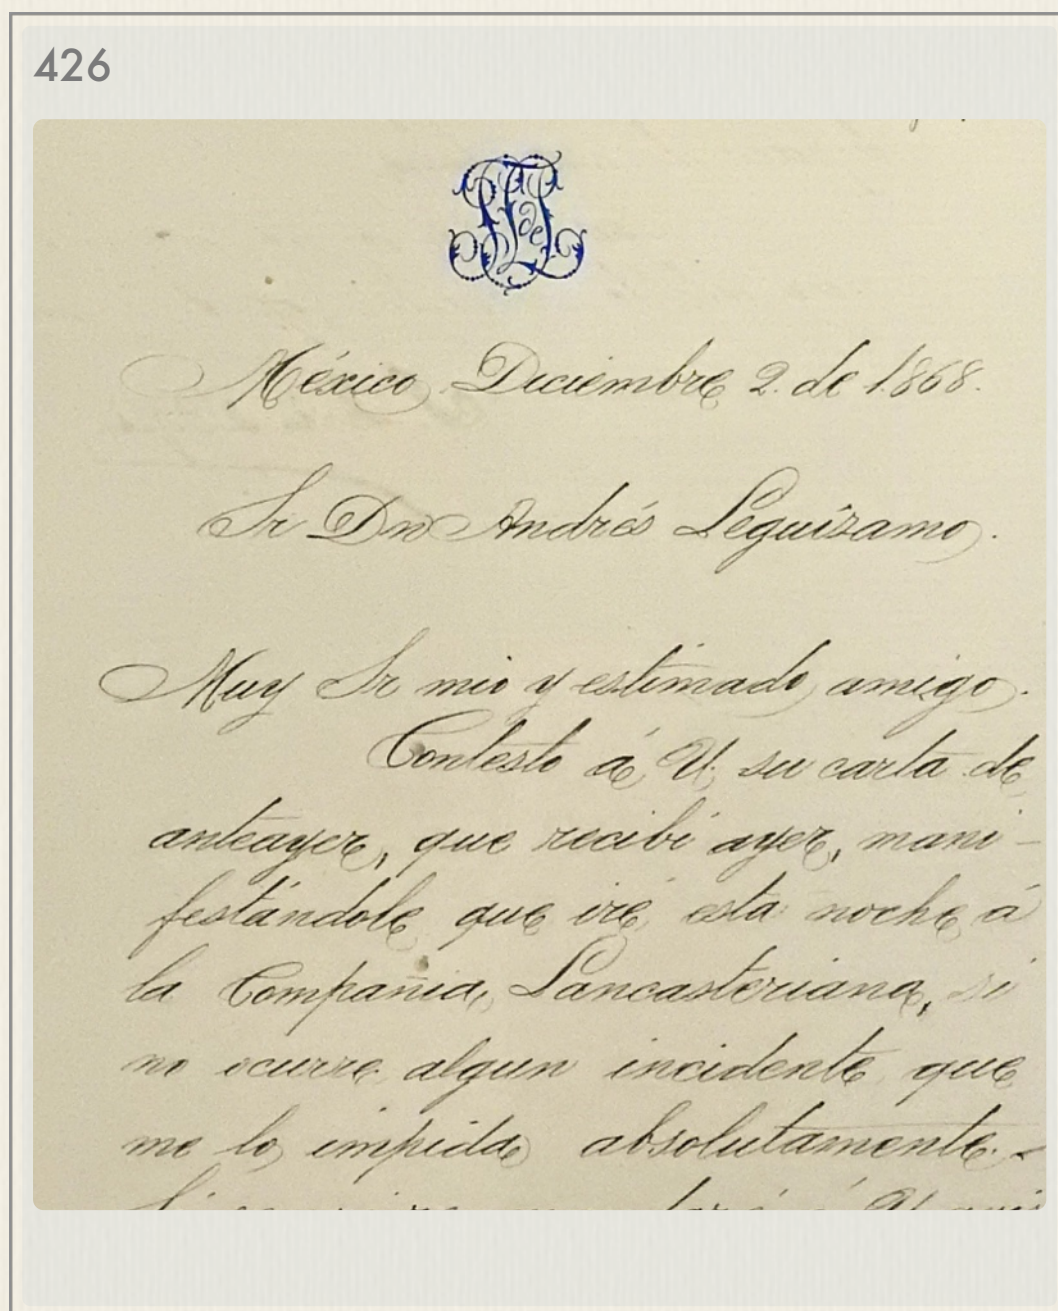 426
México Diciembre 2. de 1868.
Sr Dn Andrés Leguízamo.
Muy Sr mio y estimado amigo.
Contesto á U. su carta de
anteayer, que recibí ayer, mani-
festándole que iré esta noche á
la Compañia Lancasteriana, si
no ocurre algun incidente que
me lo impida absolutamente.